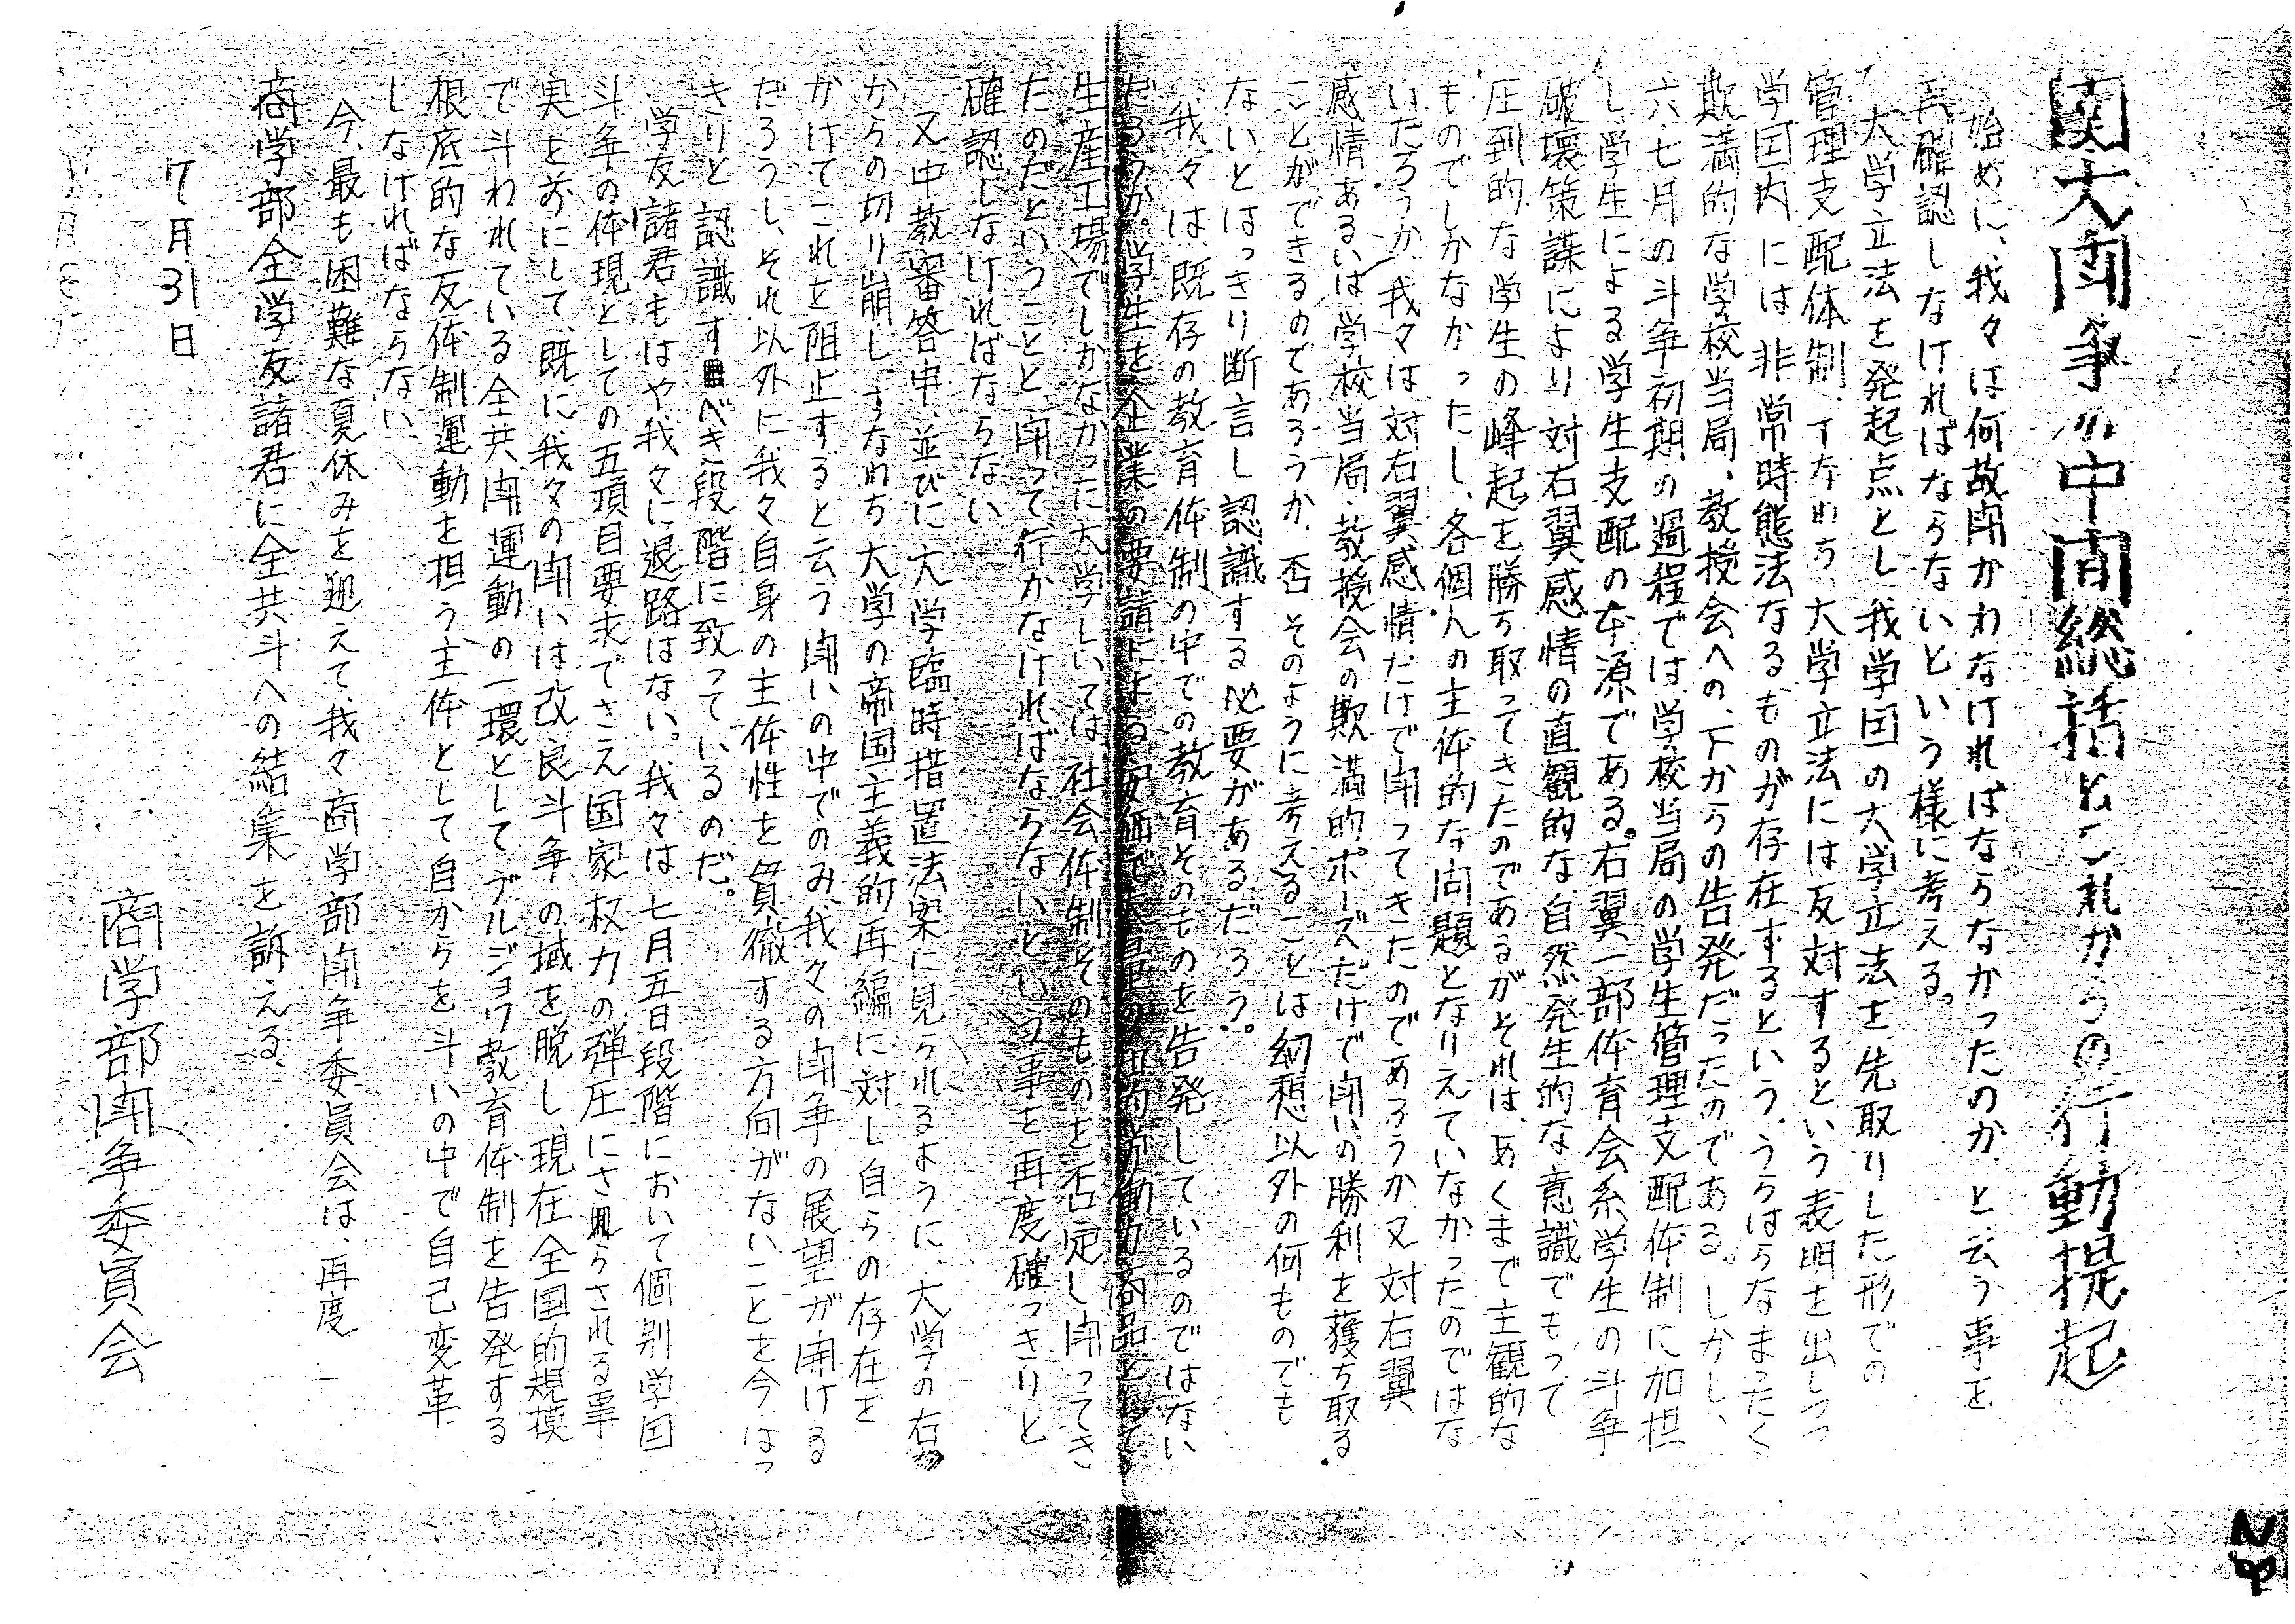 関大闘争の中間総括とこれからの行動提起
始めに、我々は何故闘かわなければならなかったのか、と云う事を
再確認しなければならないという様に考える。
大学立法を発起点とし、我学園の大学立法を先取りした形での
管理支配体制、すなわち、大学立法には反対するという表明を出しつつ
学園内には非常時態法なるものが存在するという、うらはらなまったく
欺満的な学校当局、教授会への、下からの告発だったのである。しかし、
六・七月の斗争初期の過程では、学校当局の学生管理支配体制に加担
し、学生による学生支配の本源である。右翼一部体育会系学生の斗争
破壊策謀により対右翼感情の直観的な、自然発生的な意識でもって
圧到的な学生の峰起を勝ち取ってきたのであるがそれは、あくまで主観的な
ものでしかなかったし、各個人の主体的な問題となりえていなかったのではな
いだろうか。我々は対右翼感情だけで闘ってきたのであろうか又対右翼
感情あるいは学校当局・教授会の欺満的ポーズだけで闘いの勝利を獲ち取る
ことができるのであろうか。否そのように考えることは幻想以外の何ものでも
ないとはっきり断言し認識する必要があるだろう。
我々は、既存の教育体制の中での教育そのものを告発しているのではない
だろうか。学生を企業の要請による安価で労働力商品として
生産工場でしかなかった大学しいては社会体制そのものを否定し闘ってき
たのだということと、闘って行かなければならないという事を再度確っきりと
確認しなければならない
又中教審答申、並びに大学臨時措置法案に見られるように、大学の右
からの切り崩し、すなわち大学の帝国主義的再編に対し自らの存在を
かけてこれを阻止すると云う闘いの中でのみ、我々の闘争の展望が開ける
だろうし、それ以外に我々自身の主体性を貫徹する方向がないことを今はっ
きりと認識すべき段階に致っているのだ。
学友諸君もはや我々に退路はない。我々は七月五日段階において個別学園
斗争の体現としての五項目要求でさえ国家权力の弾圧にさらされる事
実を前にして、既に、我々の闘いは改良斗争の域を脱し、現在全国的規摸
で斗われている全共闘運動の一環としてブルジョワ教育体制を告発する
根底的な反体制運動を担う主体として自からを斗いの中で自己変革
しなければならない、
今、最も困難な夏休みを迎えて、我々商学部闘争委員会は、再度
商学部全学友諸君に全共斗への結集を訴える、
7月31日
商学部闘争委員会